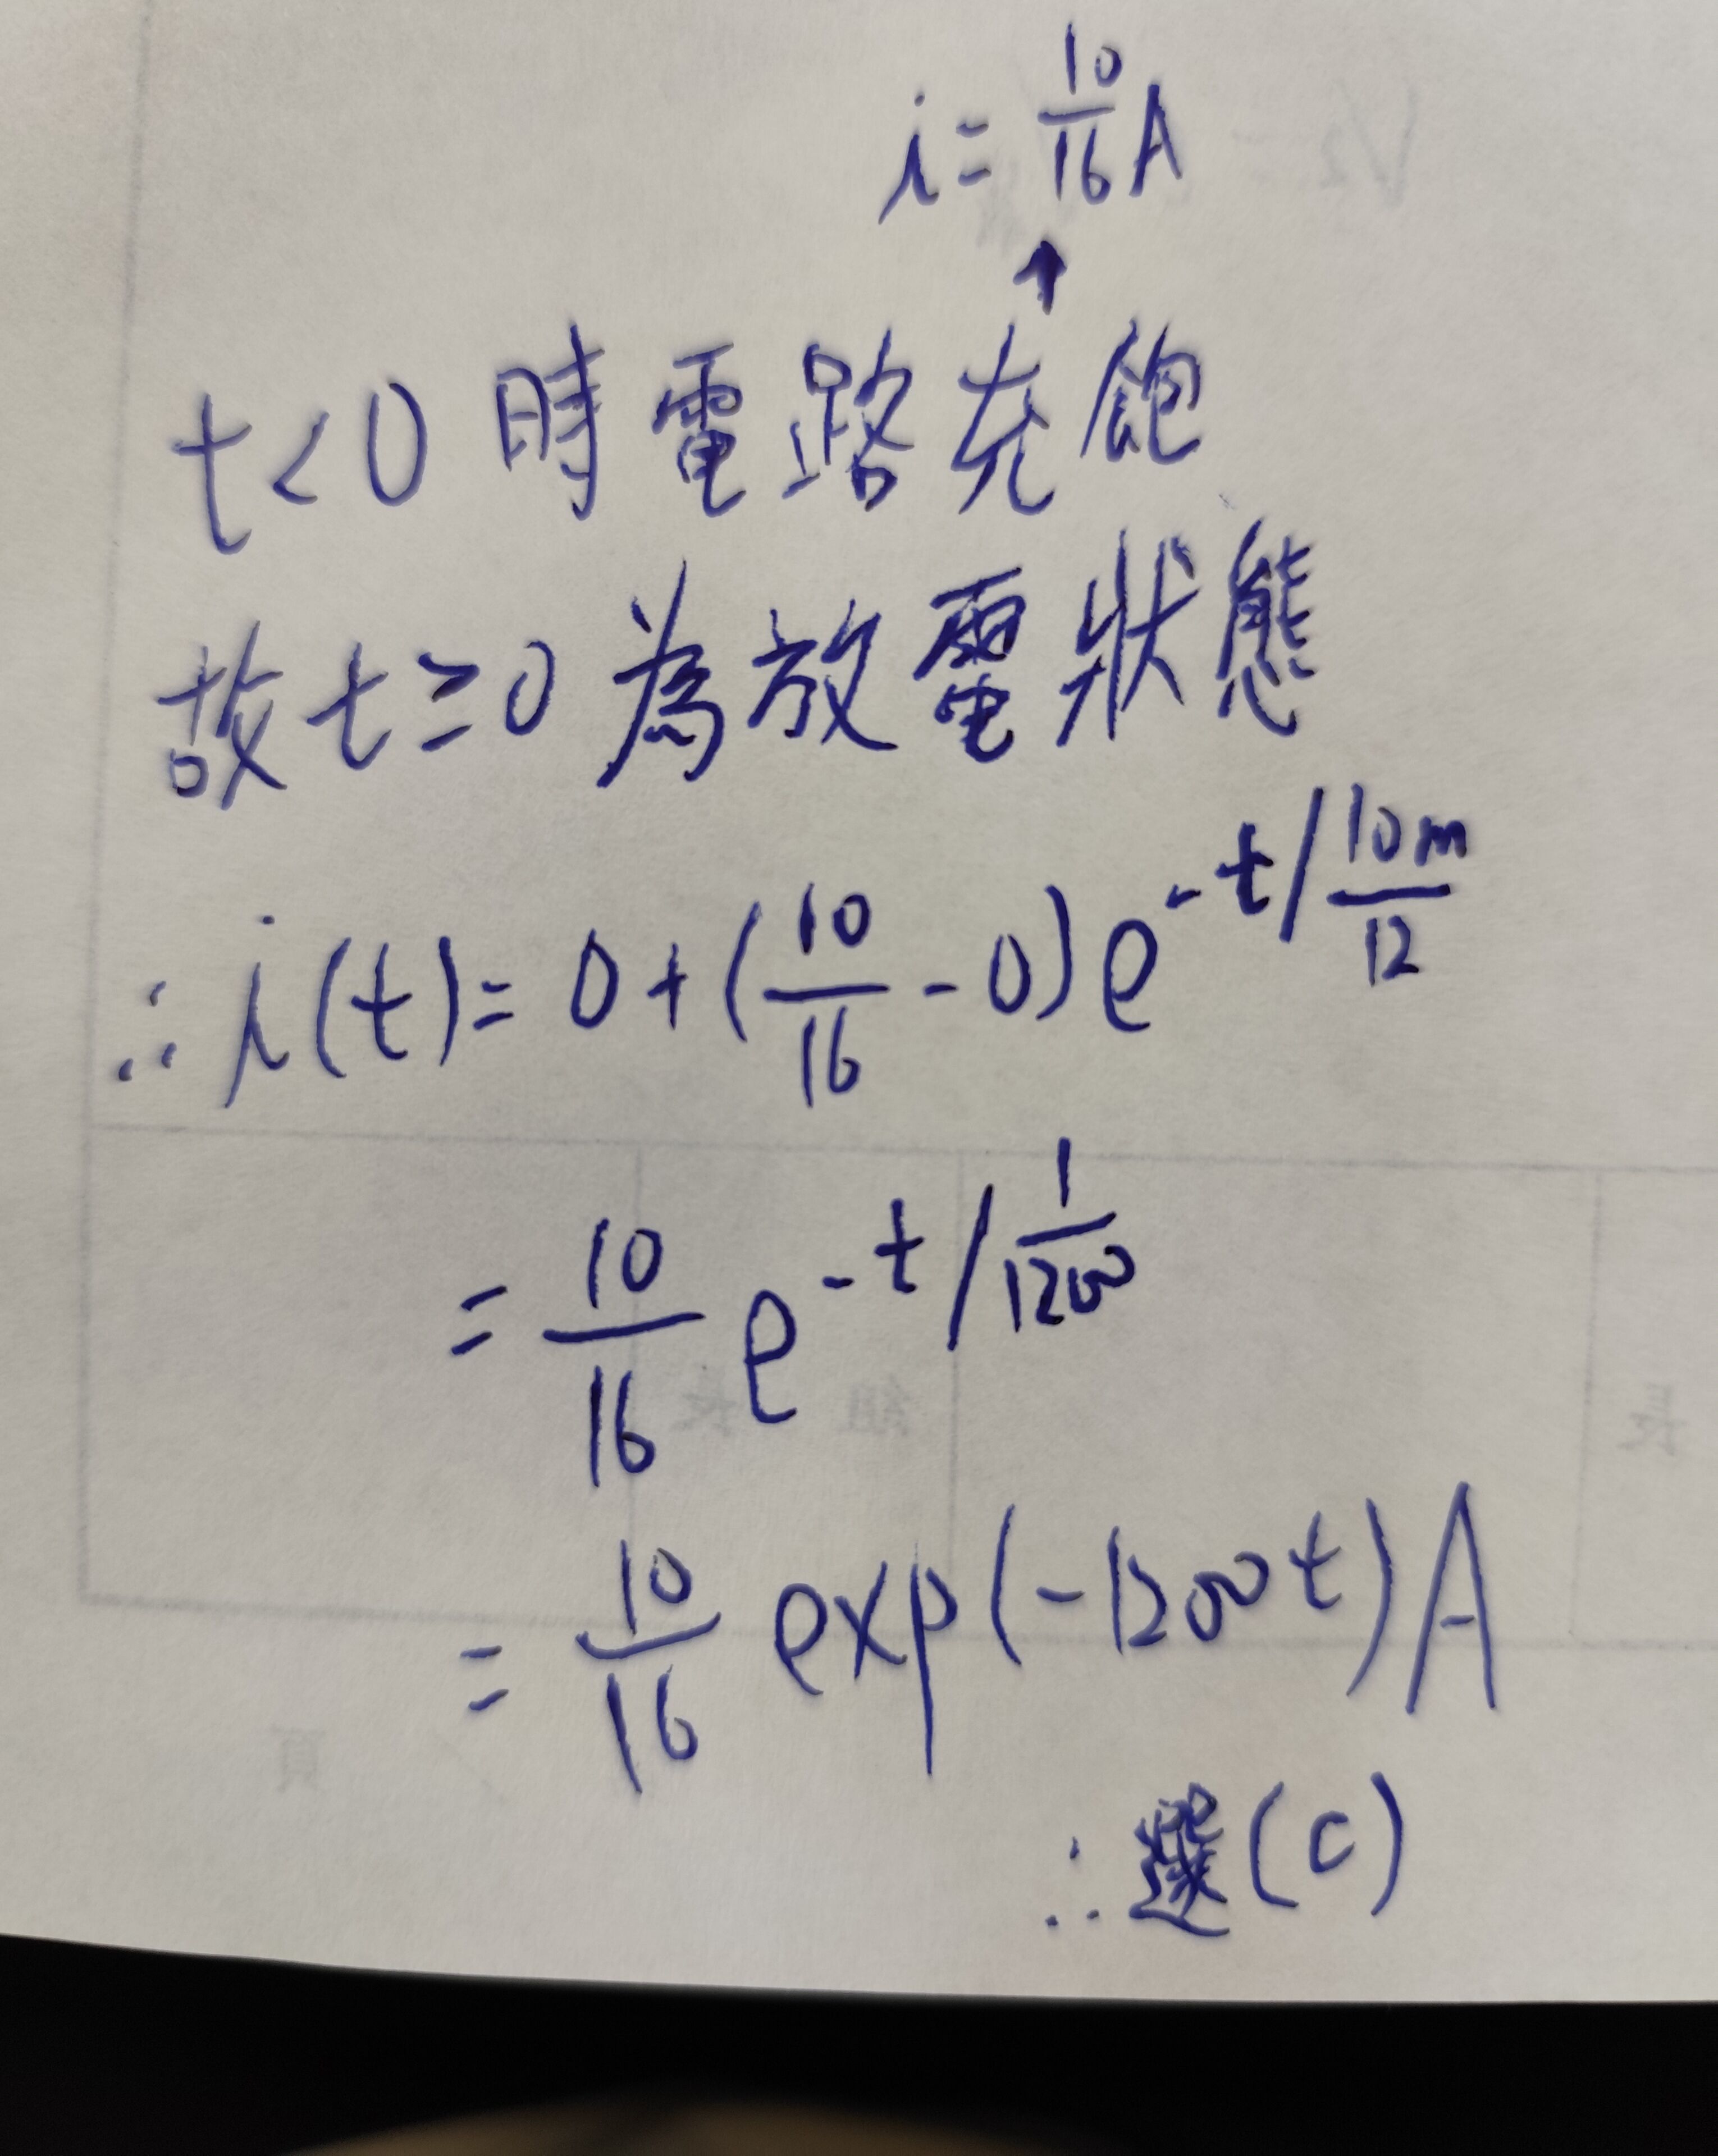 i = 10/16 A
↑
t<0 時電路充飽
故 t≥0 為放電狀態
∴ i(t) = 0 + (10/16 - 0) e^{-t/(10m/12)}
= 10/16 e^{-t/(1/1200)}
= 10/16 exp(-1200t) A
∴ 選(C)